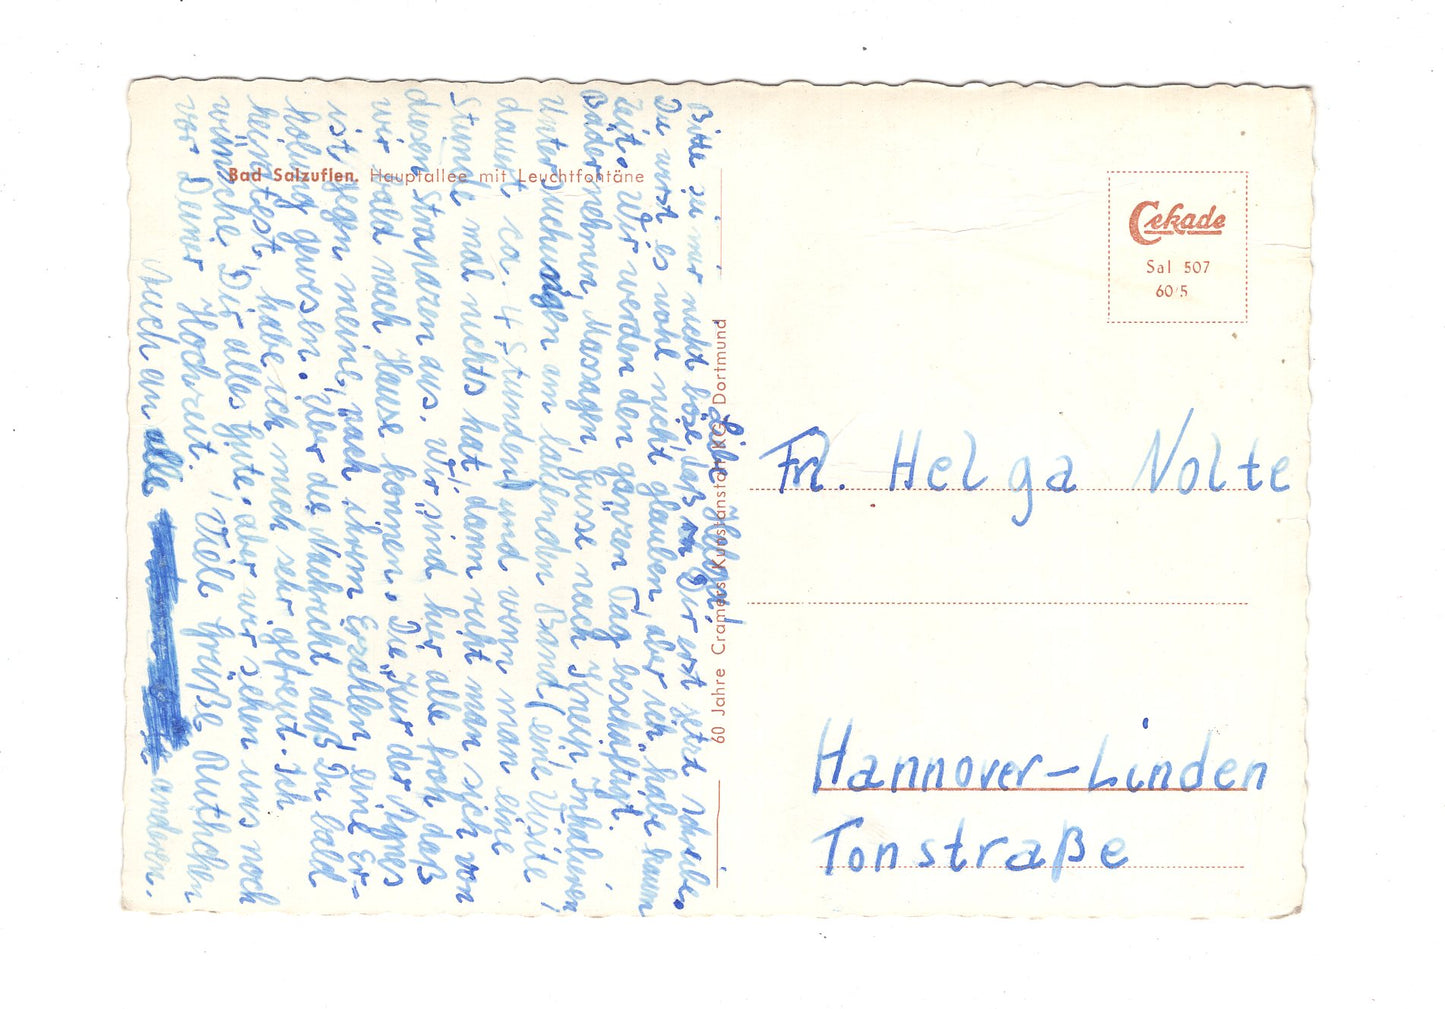 Bad Salzuflen. Hauptallee mit Leuchtfontäne
Cekade
Sal 507
60/5
60 Jahre Cramers Kunstanstalt KG. Dortmund
Frl. Helga Nolte
Hannover-Linden
Tonstraße
Liebe Helga!
Bitte sei mir nicht böse, daß Dir erst jetzt schreibe.
Du wirst es wohl nicht glauben, aber ich habe kaum
Zeit. Wir werden den ganzen Tag beschäftigt.
Bäder nehmen, Massagen, Güsse nach Kneip, Inhalieren,
Untersuchungen am laufenden Band (eine Visite
dauert ca. 4 Stunden) und wenn man eine
Stunde mal nichts hat, dann ruht man sich von
diesen Strapazen aus. Wir sind hier alle froh, daß
wir bald nach Hause können. Die Kur der Agnes
ist gegen meine, nach ihrem Erzählen, eine Er-
holung gewesen. Über die Nachricht daß Du bald
heiratest, habe ich mich sehr gefreut. Ich
wünsche Dir alles Gute, aber wir sehen uns noch
vor Deiner Hochzeit. Viele Grüße Ruthchen
Auch an alle anderen.